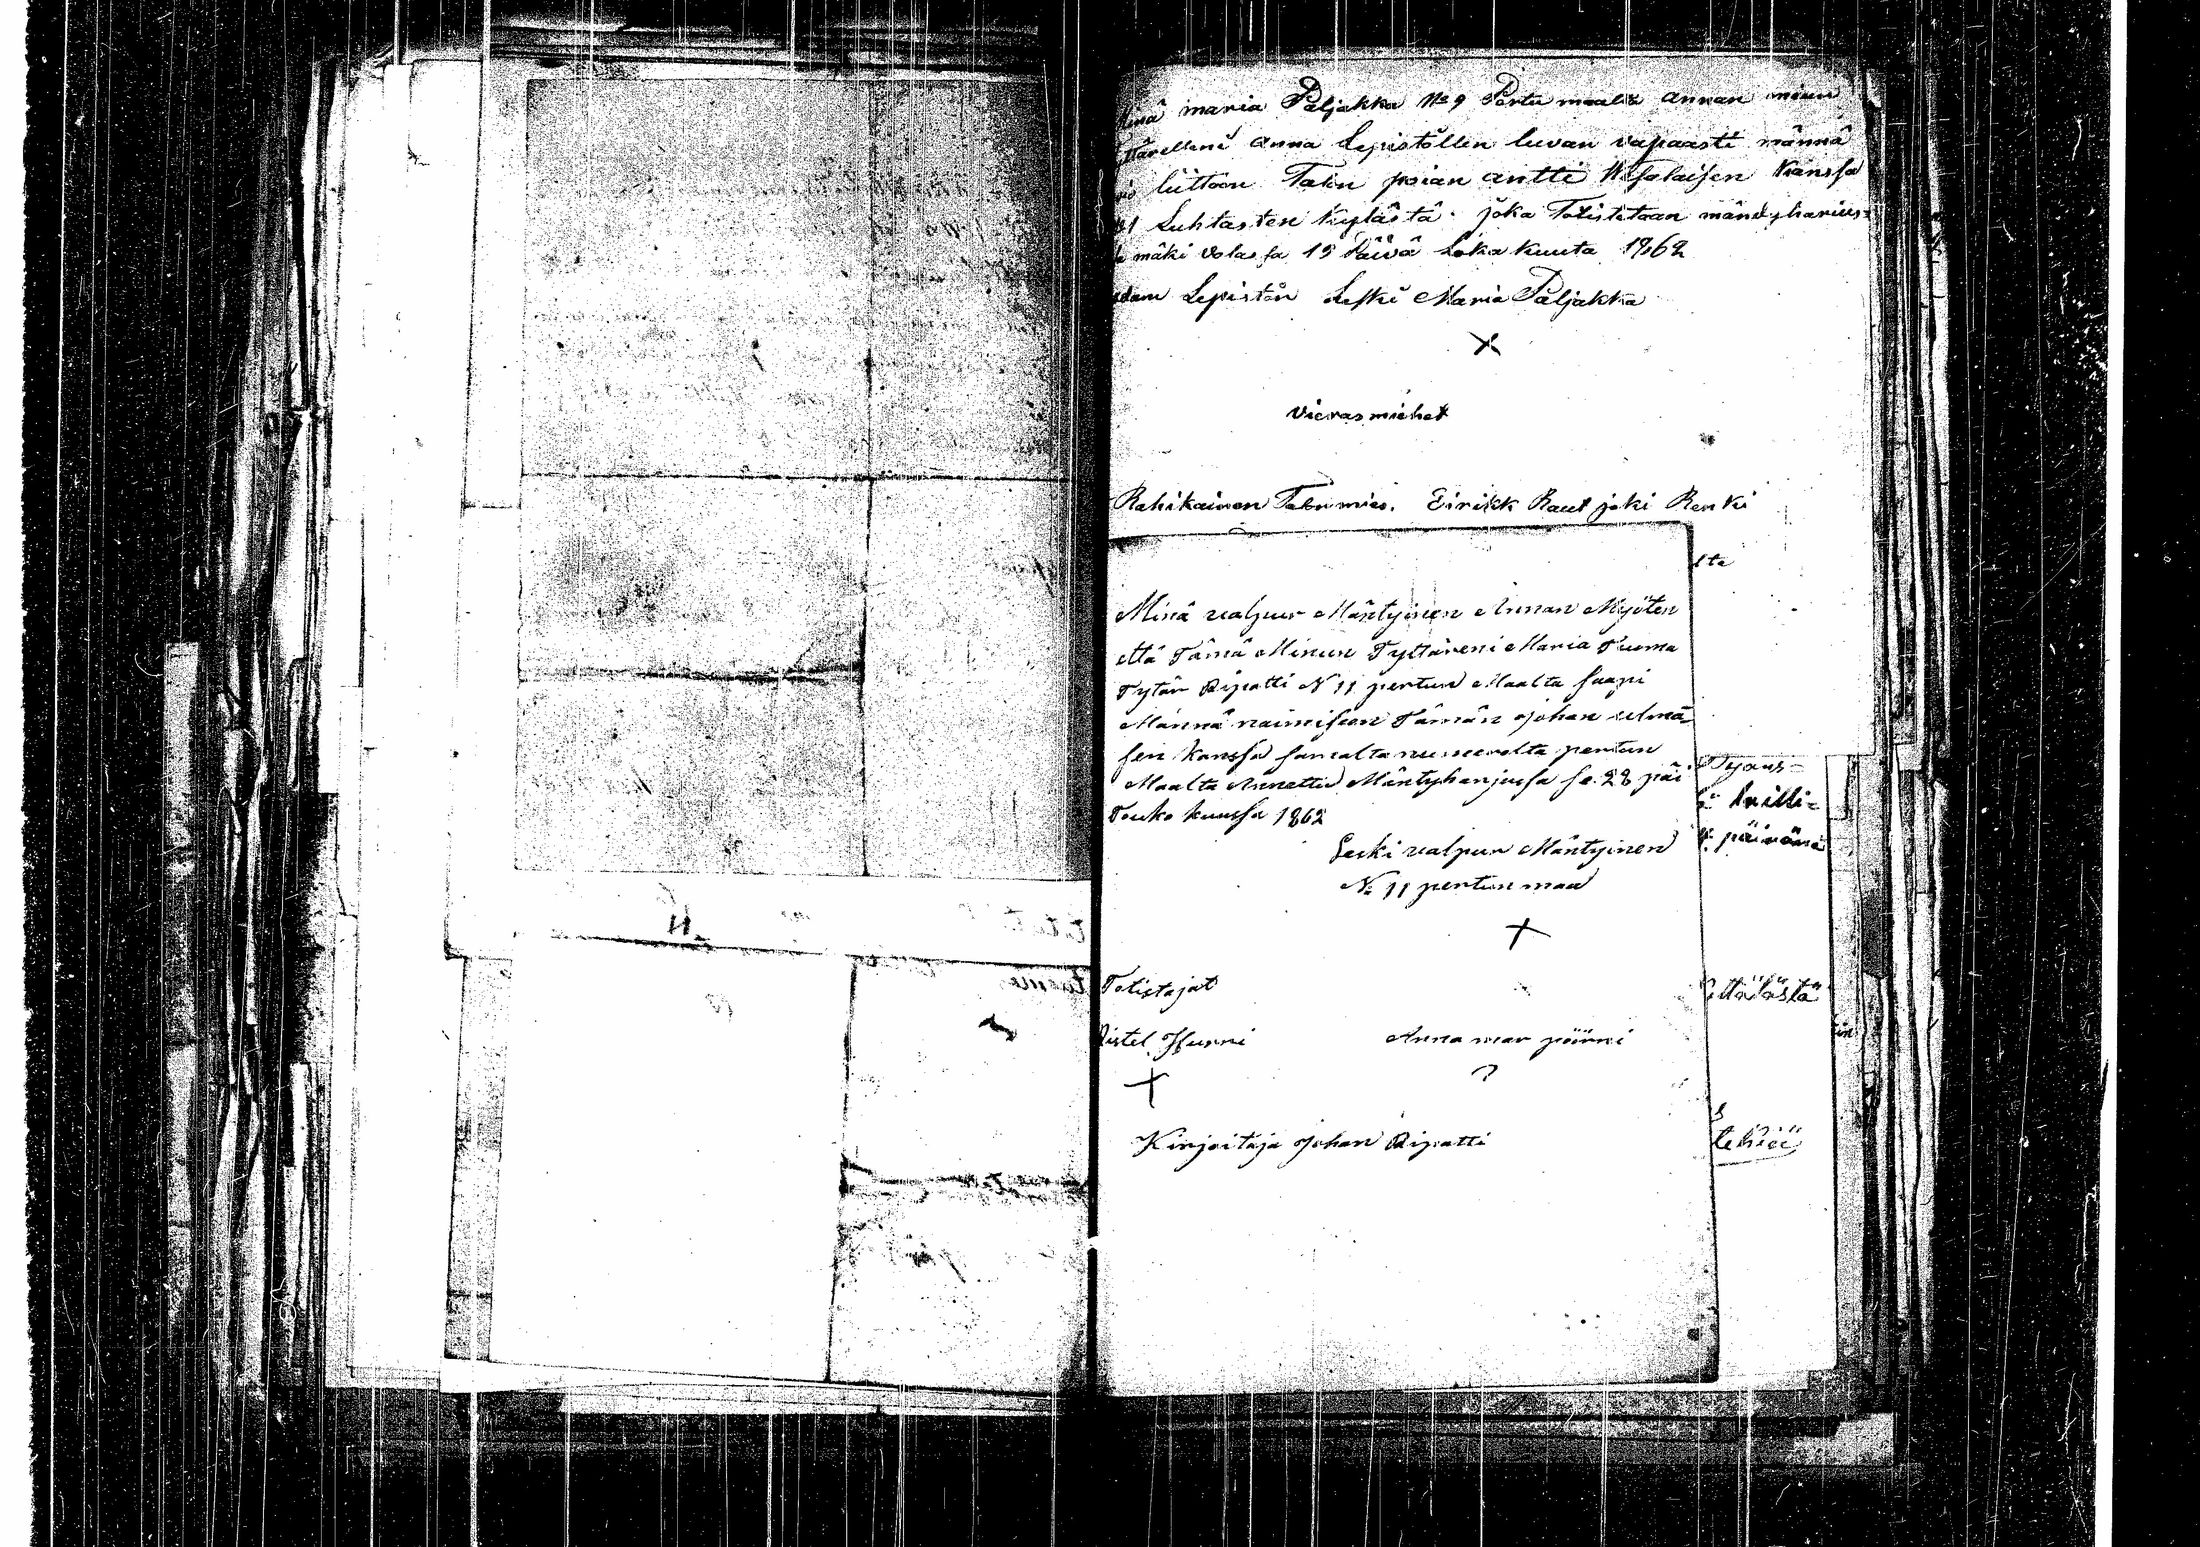 Minä maria Paljakka No 9 Pertu maalta annan minun
tyttärelleni anna Lepistöllen luvan vapaasti männä
liittoon Talon poian antti Wesalaisen Kanssa
Luhtasten Kylästä. joka Totistetaan mäntyharius
mäki Volassa 19 Päivä Loka kuuta 1862
adam Lepistön Leski Maria Paljakka
X
vierasmiehet
Rahikainen Talu mies. Eirikk Raut joki Renki
lta
Minä valpur Mäntyinen Annan Myöten
että Tämä Minun Tyttäreni Maria Tuoma
Tytär Ripatti N 11 pertun Maalta saapi
Männä naimiseen Tämän johan
sen Kanssa samalta numerolta pertun
Maalta Annettu Mäntyharjussa se. 28 päi
Touko kuussa 1862
Leski valpur Mäntyinen
No 11 pertun maa
päivänä
Totistajat
Ristel Hurri Anna mar pöinni
Kirjoitaja Johan Ripatti